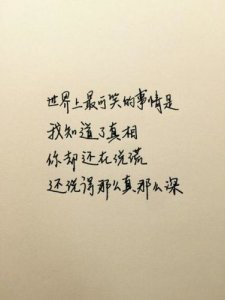 世界上最可笑的事情是
我知道了真相
你却还在说谎
还说得那么真那么深